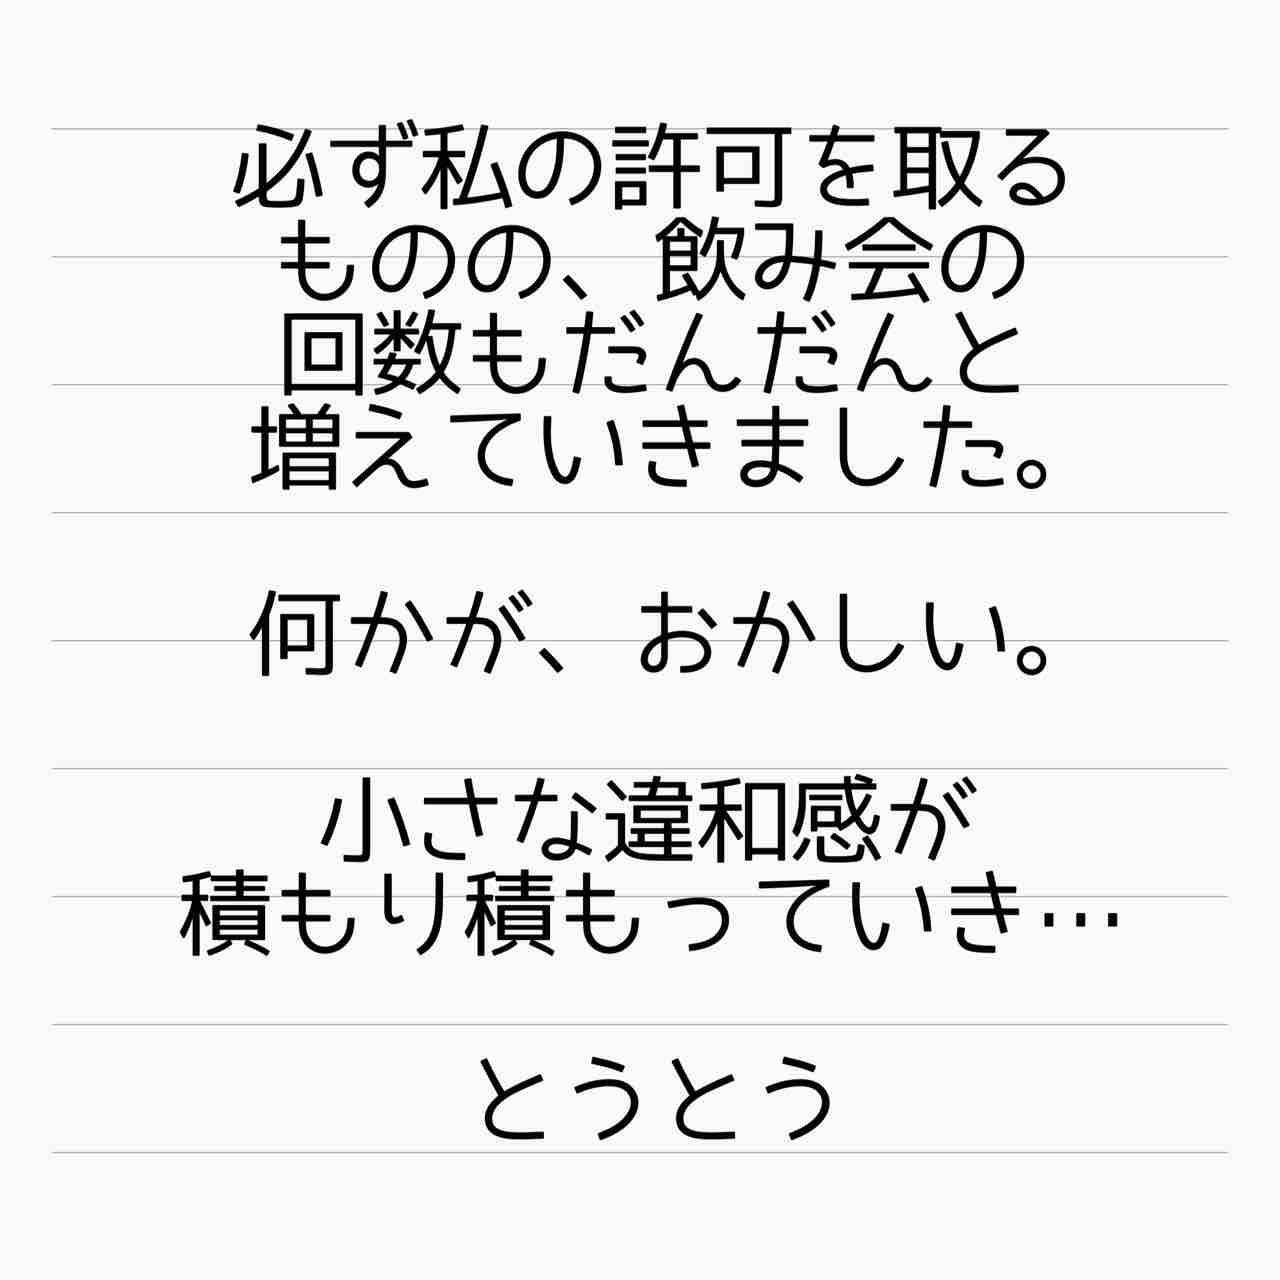 必ず私の許可を取る
ものの、飲み会の
回数もだんだんと
増えていきました。
何かが、おかしい。
小さな違和感が
積もり積もっていき…
とうとう